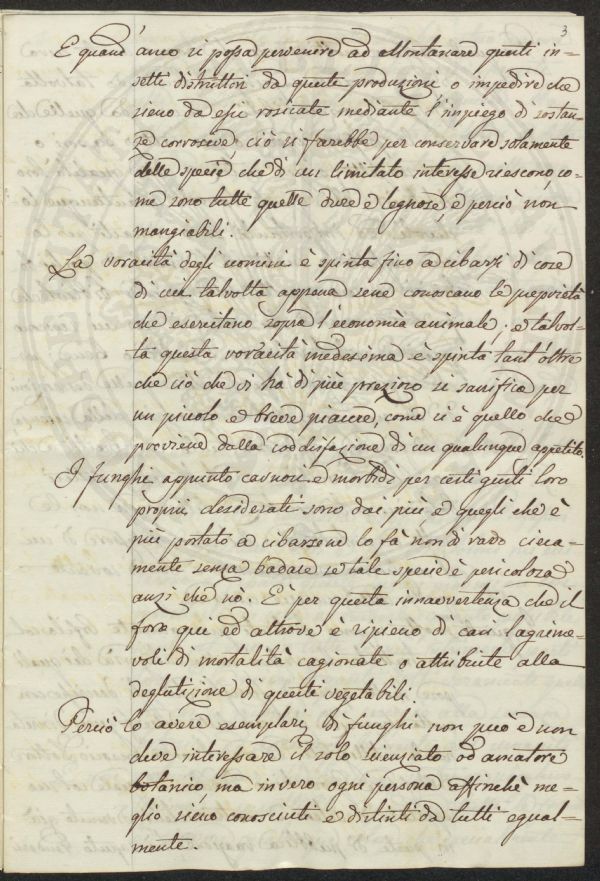 3
E quand' anco si possa pervenire ad allontanare questi in=
setti distruttori da queste produzioni o impedire che
sieno da essi rosicate mediante l'inpiego di sostan=
ze corrosive, ciò si farebbe per conservare solamente
delle specie che di un limitato interesse riescono, co=
me sono tutte quelle dure e legnose, e perciò non
mangiabili.
La voracità degli uomini è spinta fino a cibarsi di cose
di cui talvolta appena sene conoscano le proprietà
che esercitano sopra l'economia animale; e talvol=
ta questa voracità medesima è spinta tant'oltre
che ciò che vi hà di più prezioso si sacrifica per
un piccolo e breve piacere, come si è quello che
proviene dalla soddisfazione di un qualunque appetito.
I funghi appunto carnosi e morbidi per certi gusti loro
proprii desiderati sono dai più e quegli che è
più portato a cibarsene lo fà non di rado cieca=
mente senza badare se tale specie è pericolosa
anzi che nò. E per questa innavvertenza che il
foro qui ed altrove è ripieno di casi lagrime=
voli di mortalità cagionate o attribuite alla
deglutizione di questi vegetabili.
Perciò lo avere esemplari di funghi non può e non
deve interessare il solo scienziato od amatore
botanico, ma invero ogni persona affinchè me=
glio sieno conosciuti e distinti da tutti egual=
mente.